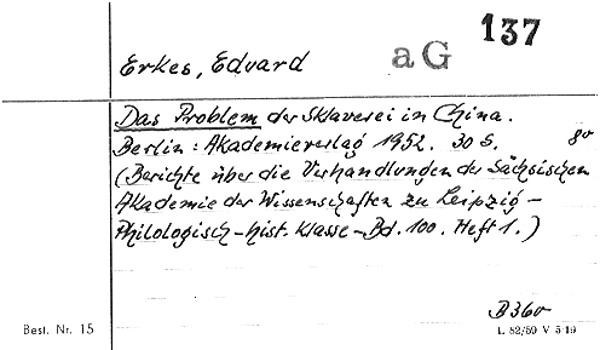 137
Erkes, Eduard
a G
Das Problem der Sklaverei in China.
Berlin: Akademieverlag 1952. 30 S. 8o
(Berichte über die Verhandlungen der Sächsischen
Akademie der Wissenschaften zu Leipzig -
Philologisch-hist. Klasse - Bd. 100. Heft 1.)
B 360
Best. Nr. 15
L 82/59 V 5 19